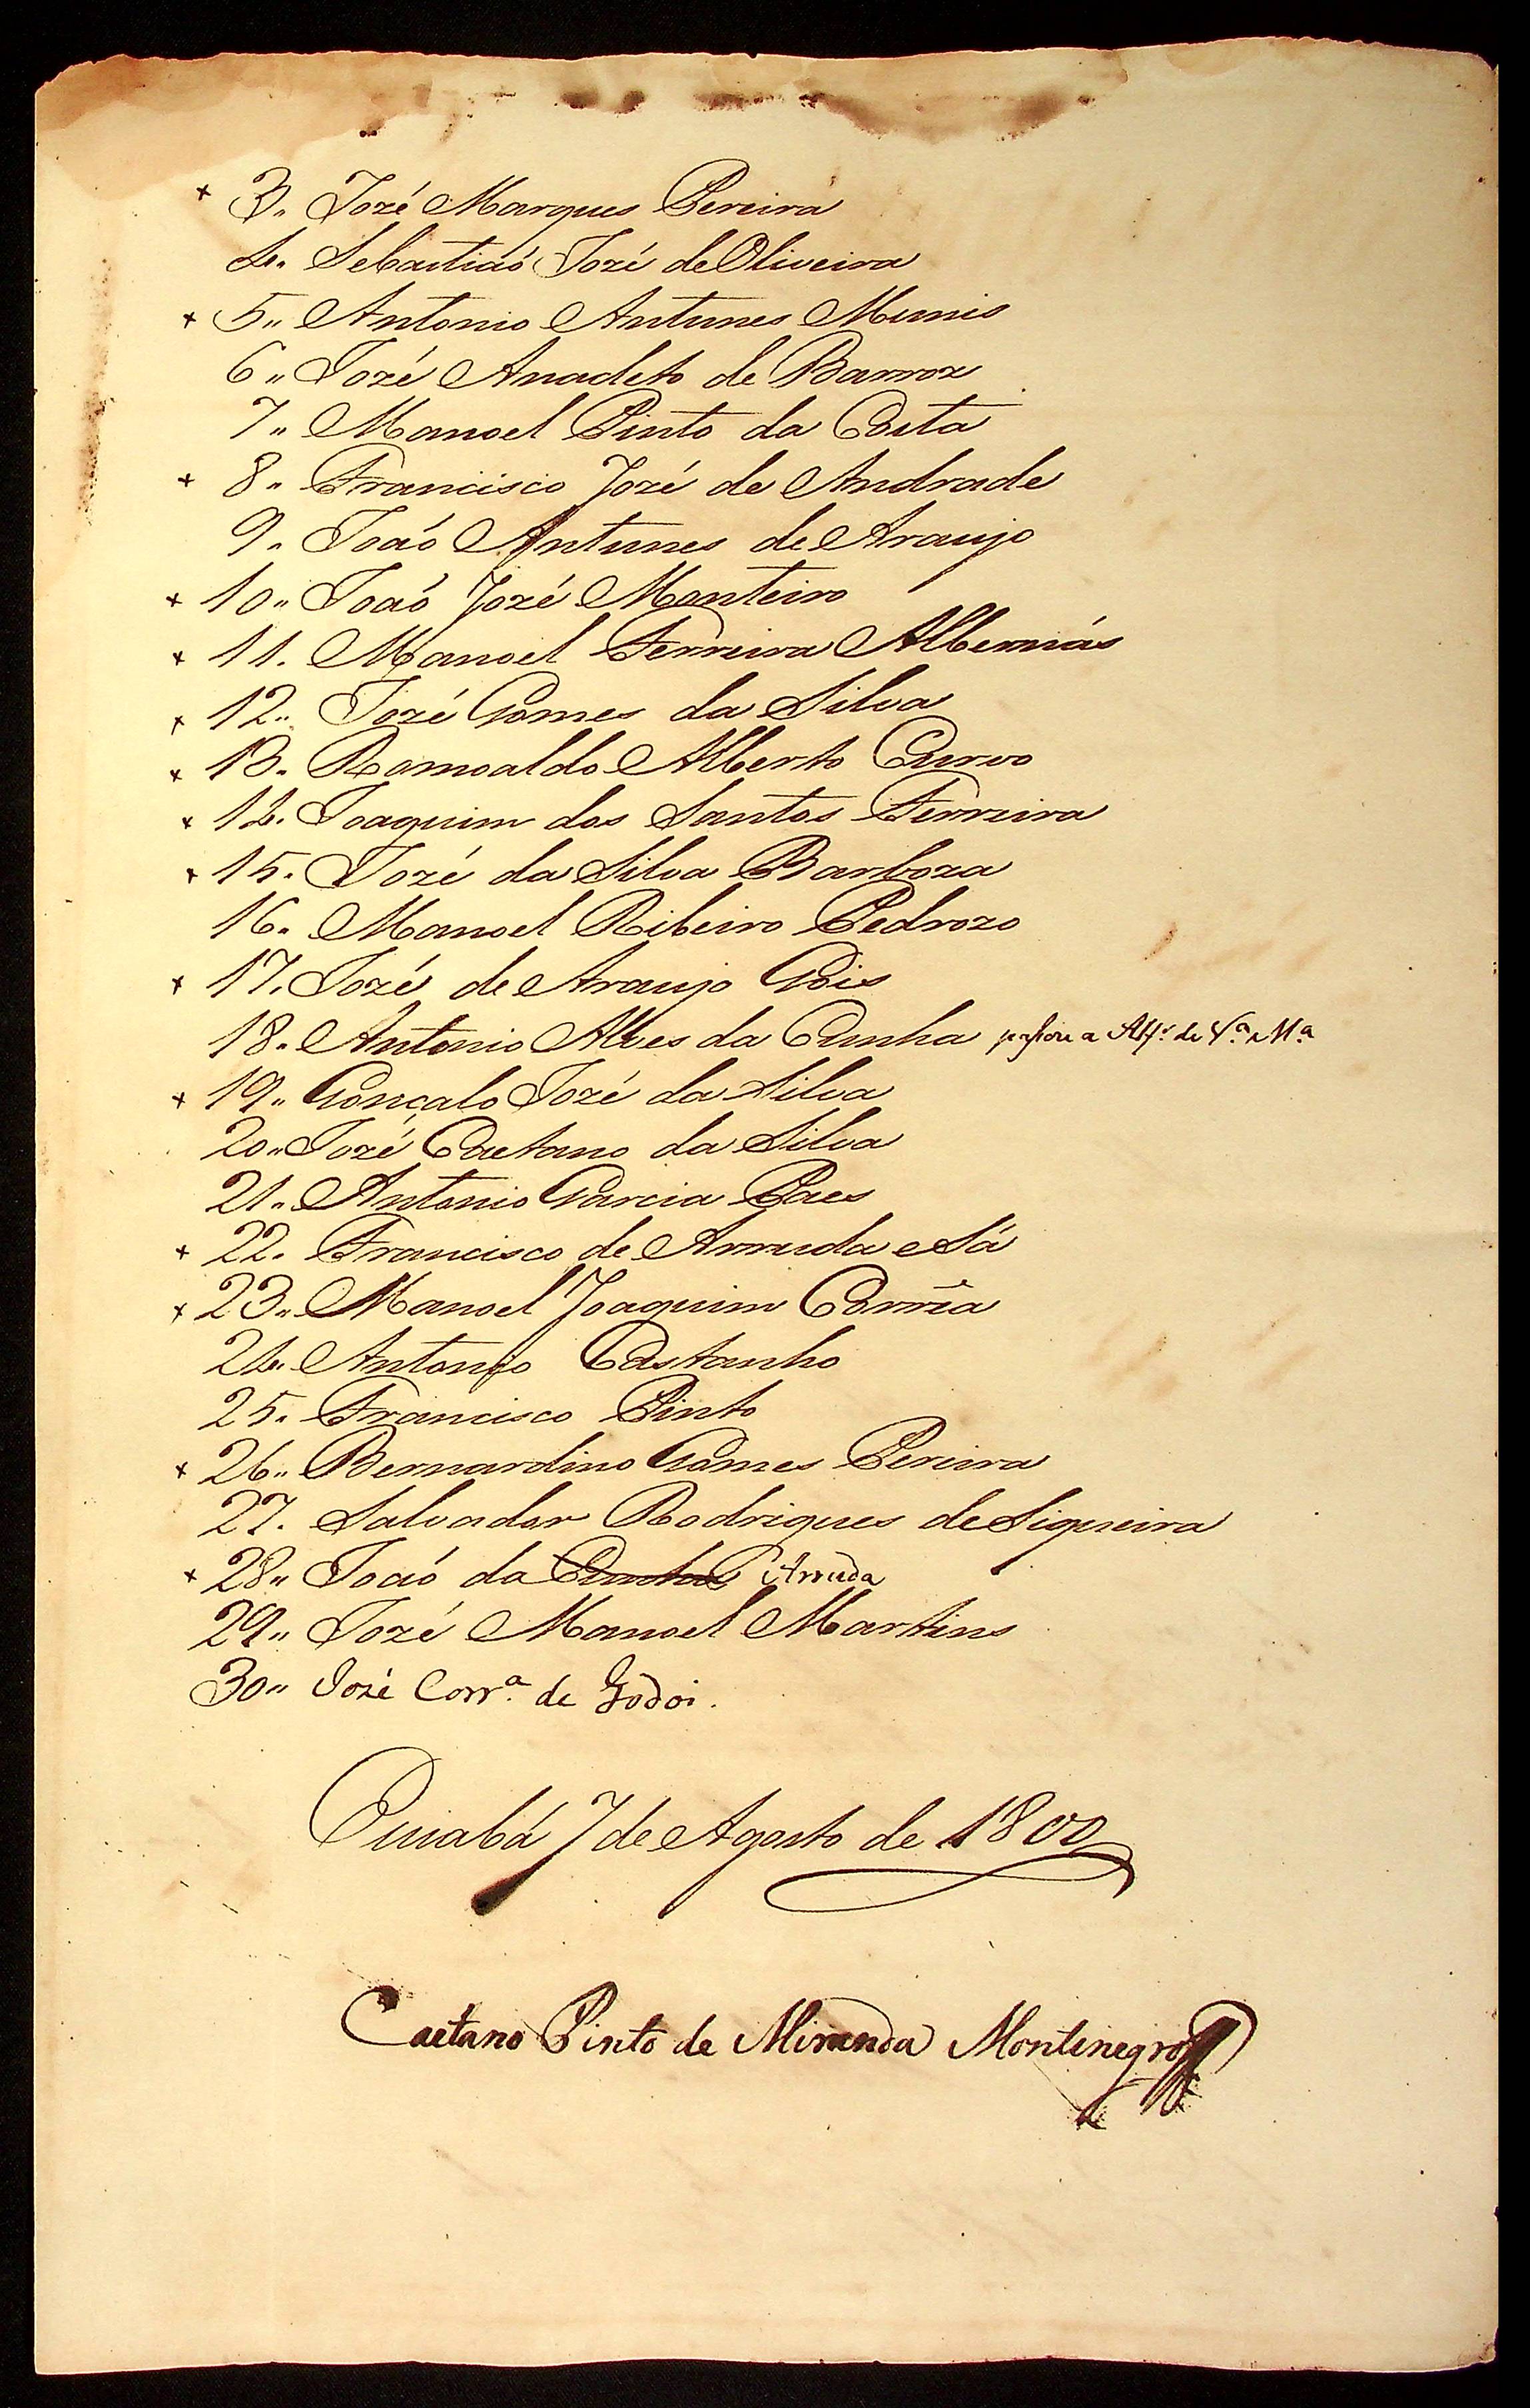 × 3. Jozé Marques Pereira
4. Sebastiaó Jozé de Oliveira
× 5. Antonio Antunes Munis
6. Jozé Anacleto de Barros
7. Manoel Pinto da Costa
× 8. Francisco Jozé de Andrade
9. Joaó Antunes de Araujo
× 10. Joaó Jozé Monteiro
× 11. Manoel Ferreira Albernás
× 12. Jozé Gomes da Silva
× 13. Romoaldo Alberto Curvo
× 14. Joaquim dos Santos Ferreira
× 15. Jozé da Silva Barboza
16. Manoel Ribeiro Pedrozo
× 17. Jozé de Araujo Góis
18. Antonio Alves da Cunha passou a Alfˢ de Vª Mª
× 19. Gonçalo Jozé da Silva
20. Jozé Caetano da Silva
21. Antonio Garcia Paes
× 22. Francisco de Arruda e Sá
× 23. Manoel Joaquim Corrêa
24. Antonio Castanho
25. Francisco Pinto
× 26. Bernardino Gomes Pereira
27. Salvador Rodrigues de Siqueira
× 28. Joaó da Cunha Arruda
29. Jozé Manoel Martins
30. José Corrª de Godoi.
Cuiabá 7 de Agosto de 1800
Caetano Pinto de Miranda Montenegro